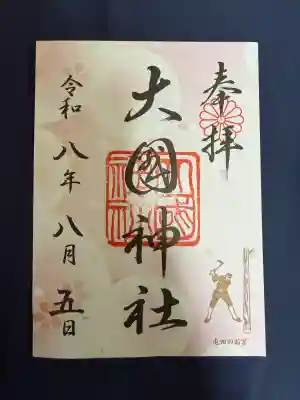 奉拝
大國神社
令和八年八月五日